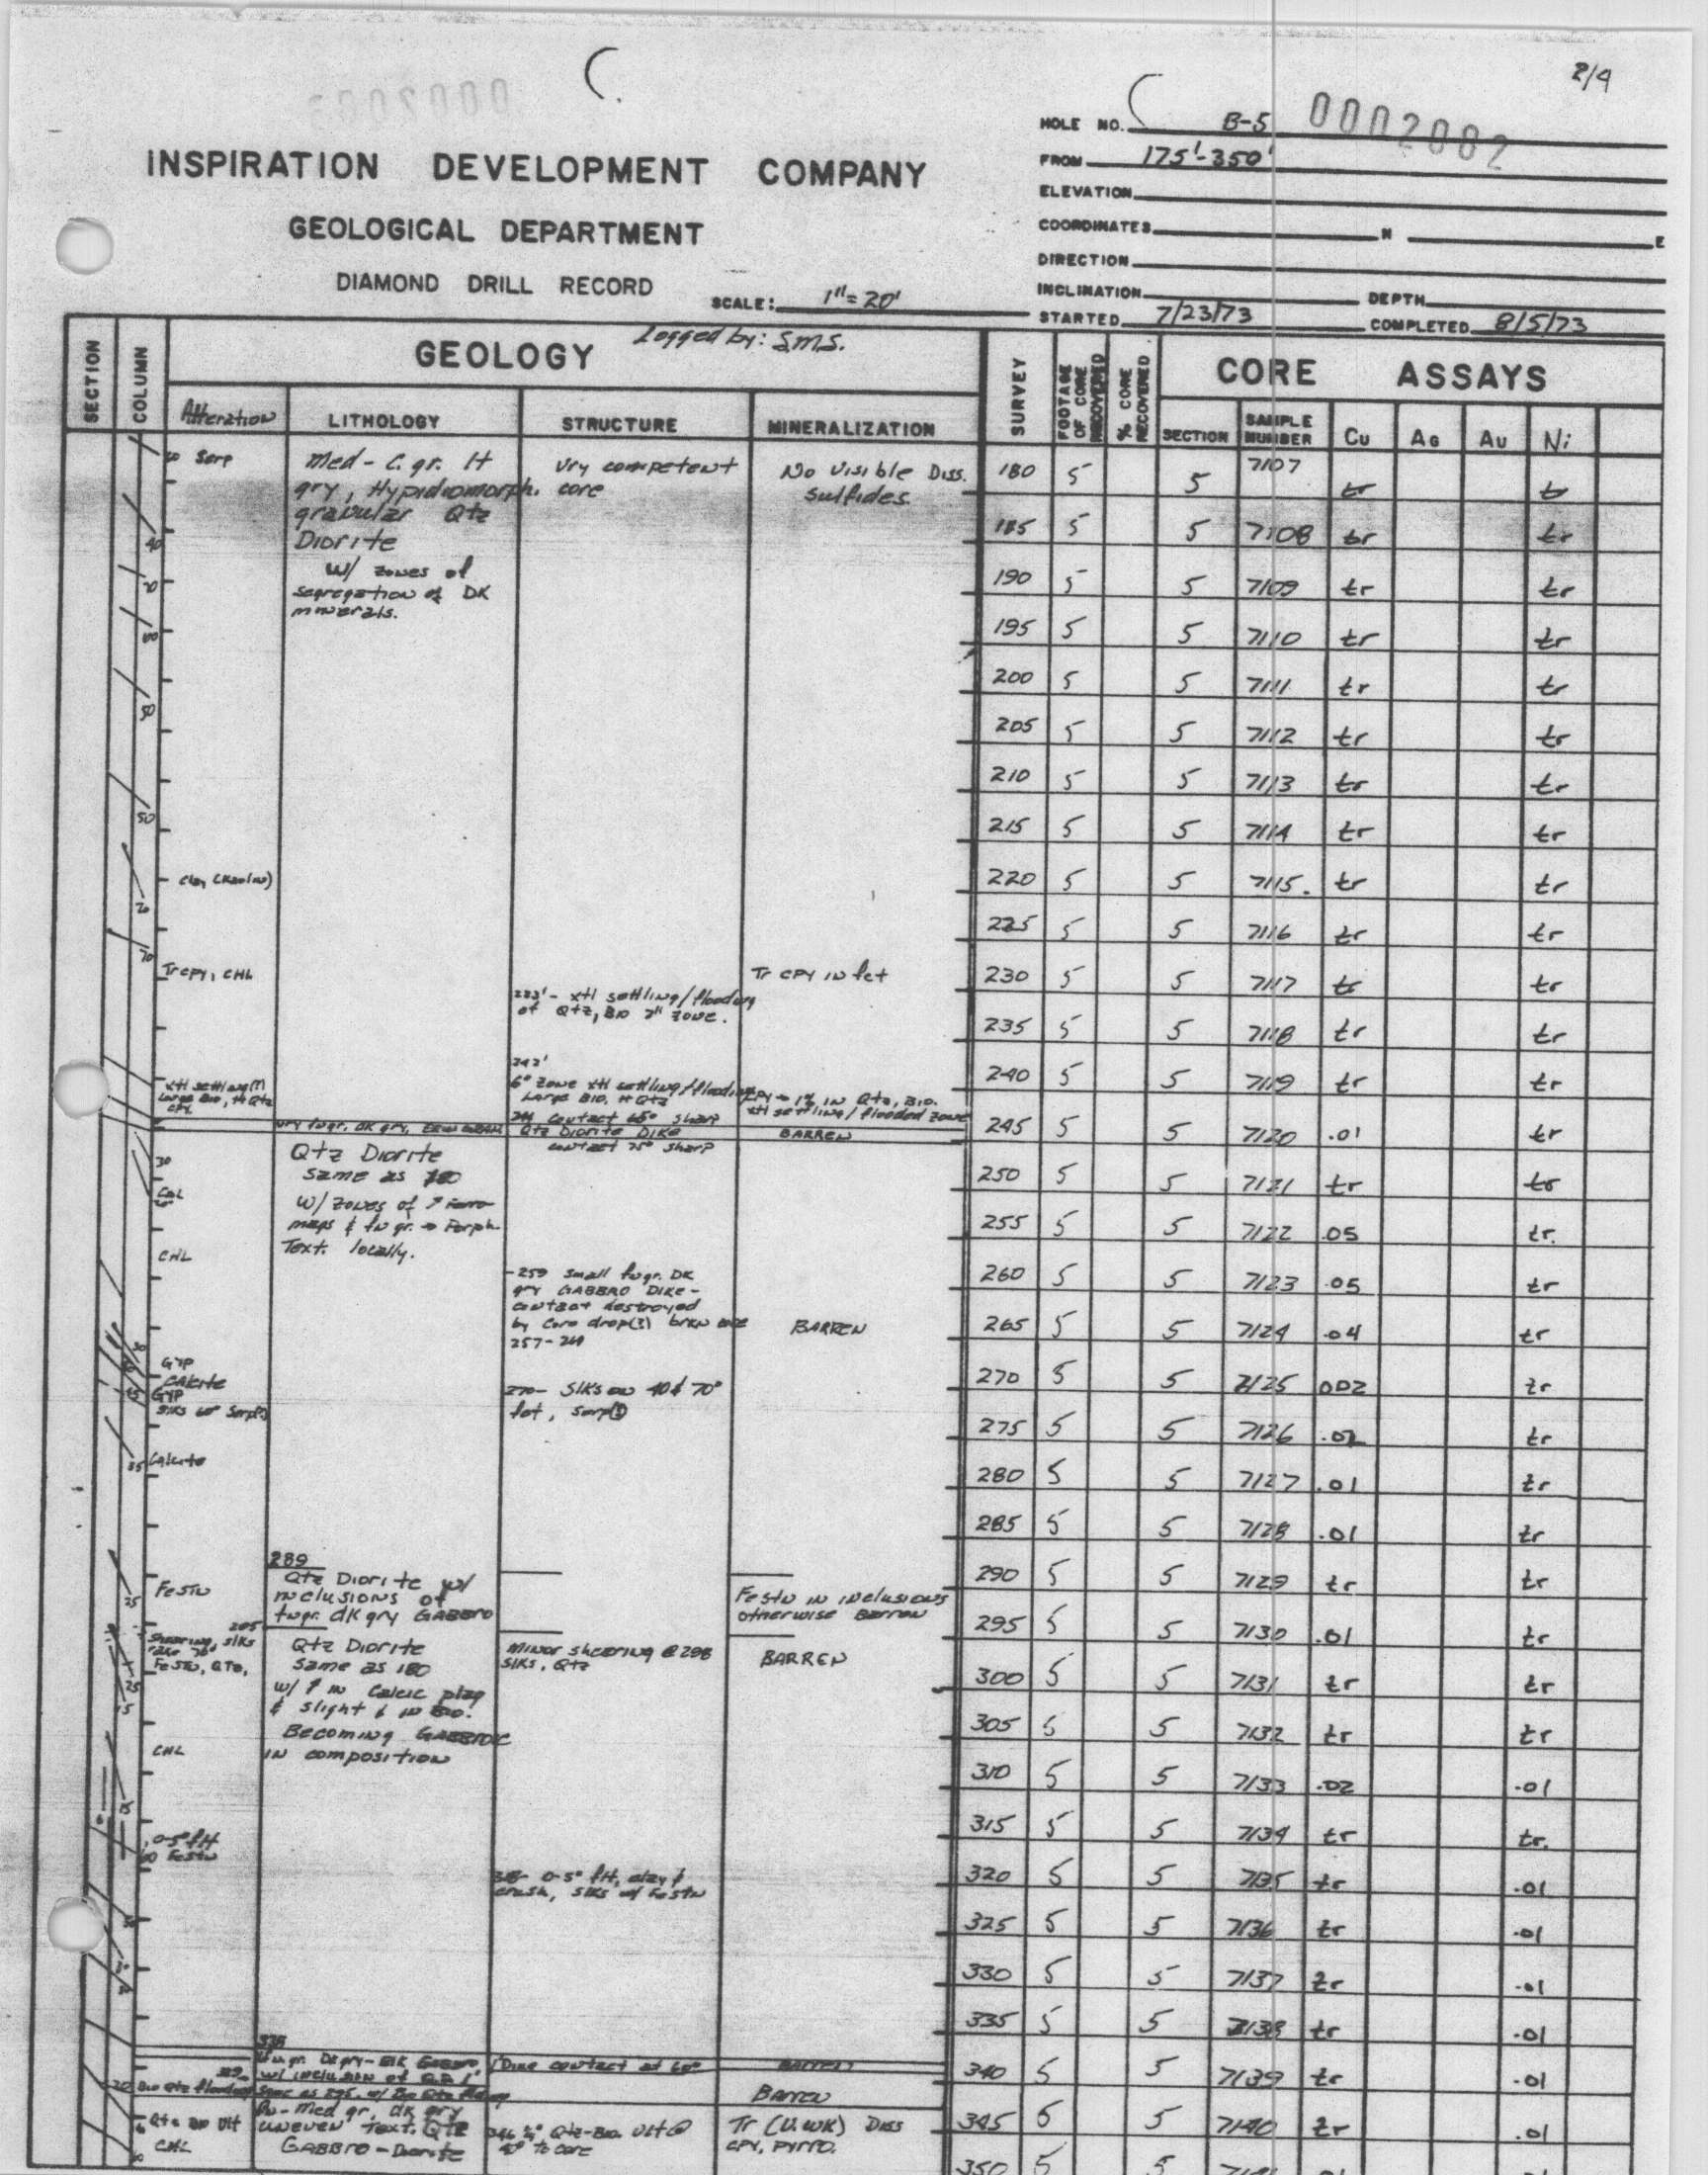 2/4
0002002
HOLE NO. B-5
FROM 175'-350'
ELEVATION
COORDINATES N E
DIRECTION
INCLINATION DEPTH
STARTED 7/23/73 COMPLETED 8/5/73
INSPIRATION DEVELOPMENT COMPANY
GEOLOGICAL DEPARTMENT
DIAMOND DRILL RECORD
SCALE: 1"=20'
SECTION
COLUMN
GEOLOGY
Logged by: S.M.S.
Alteration
LITHOLOGY
STRUCTURE
MINERALIZATION
SURVEY
FOOTAGE OF CORE RECOVERED
% CORE RECOVERED
CORE ASSAYS
SECTION SAMPLE NUMBER Cu AG AU Ni
Serp
Clay (Kaolin)
Tr CPY, CHL
xtl settling(?)
Large Bio, + Qtz
CPY
30
CHL
GYP
CALCITE
GYP
Slks 60° Serp(?)
35 Calcite
Festn
25
295
Shearing, slks
Festn, QTZ,
25
15
CHL
0-5° flt
Festn
Bio Qtz flooded
Qtz Bio Vlt
CHL
Med - C. gr. lt
gry, Hypidiomorph.
granular Qtz
Diorite
w/ zones of
segregation of DK
minerals.
Qtz Diorite
same as 180
w/ zones of ↑ Ferro
mags & fn gr. → Porph.
Text. locally.
289
Qtz Diorite w/
inclusions of
fngr. dk gry GABBRO
Qtz Diorite
same as 180
w/ ↑ in Calcic plag
& slight ↓ in Bio.
Becoming GABBROIC
in composition
w/ inclusion of
Same as 295, w/ Bio Qtz flooding
Fn-Med gr, dk gry
uneven text. Qtz
GABBRO-Diorite
Vry competent
core
233'- xtl settling/flooding
of Qtz, Bio 2" zone.
242'
6" zone xtl settling/flooding
Large Bio. + Qtz
244 contact 65° sharp
Qtz Diorite DIKE
contact 75° sharp
-259 small fngr. DK
gry GABBRO DIKE-
contact destroyed
by core drop(?) brkn core
257-261
270- Slks on 40 & 70°
fct, serp(?)
Minor shearing @ 298
slks, Qtz
318- 0-5° flt, clay &
crush, slks w/ Festn
Dike contact at 60°
346 ½" Qtz-Bio. Vlt @
40° to core
No visible Diss.
sulfides.
Tr CPY in fct
CPY → 1% in Qtz, Bio.
xtl settling/flooded zone
BARREN
BARREN
Festn in inclusions
otherwise Barren
BARREN
BARREN
BARREN
Tr (V. WK) Diss
CPY, PYRRO.
180 5 5 7107 tr tr
185 5 5 7108 tr tr
190 5 5 7109 tr tr
195 5 5 7110 tr tr
200 5 5 7111 tr tr
205 5 5 7112 tr tr
210 5 5 7113 tr tr
215 5 5 7114 tr tr
220 5 5 7115. tr tr
225 5 5 7116 tr tr
230 5 5 7117 tr tr
235 5 5 7118 tr tr
240 5 5 7119 tr tr
245 5 5 7120 .01 tr
250 5 5 7121 tr tr
255 5 5 7122 .05 tr.
260 5 5 7123 .05 tr
265 5 5 7124 .04 tr
270 5 5 7125 002 tr
275 5 5 7126 .02 tr
280 5 5 7127 .01 tr
285 5 5 7128 .01 tr
290 5 5 7129 tr tr
295 5 5 7130 .01 tr
300 5 5 7131 tr tr
305 5 5 7132 tr tr
310 5 5 7133 .02 .01
315 5 5 7134 tr tr.
320 5 5 7135 tr .01
325 5 5 7136 tr .01
330 5 5 7137 tr .01
335 5 5 7138 tr .01
340 5 5 7139 tr .01
345 5 5 7140 tr .01
350 5 5